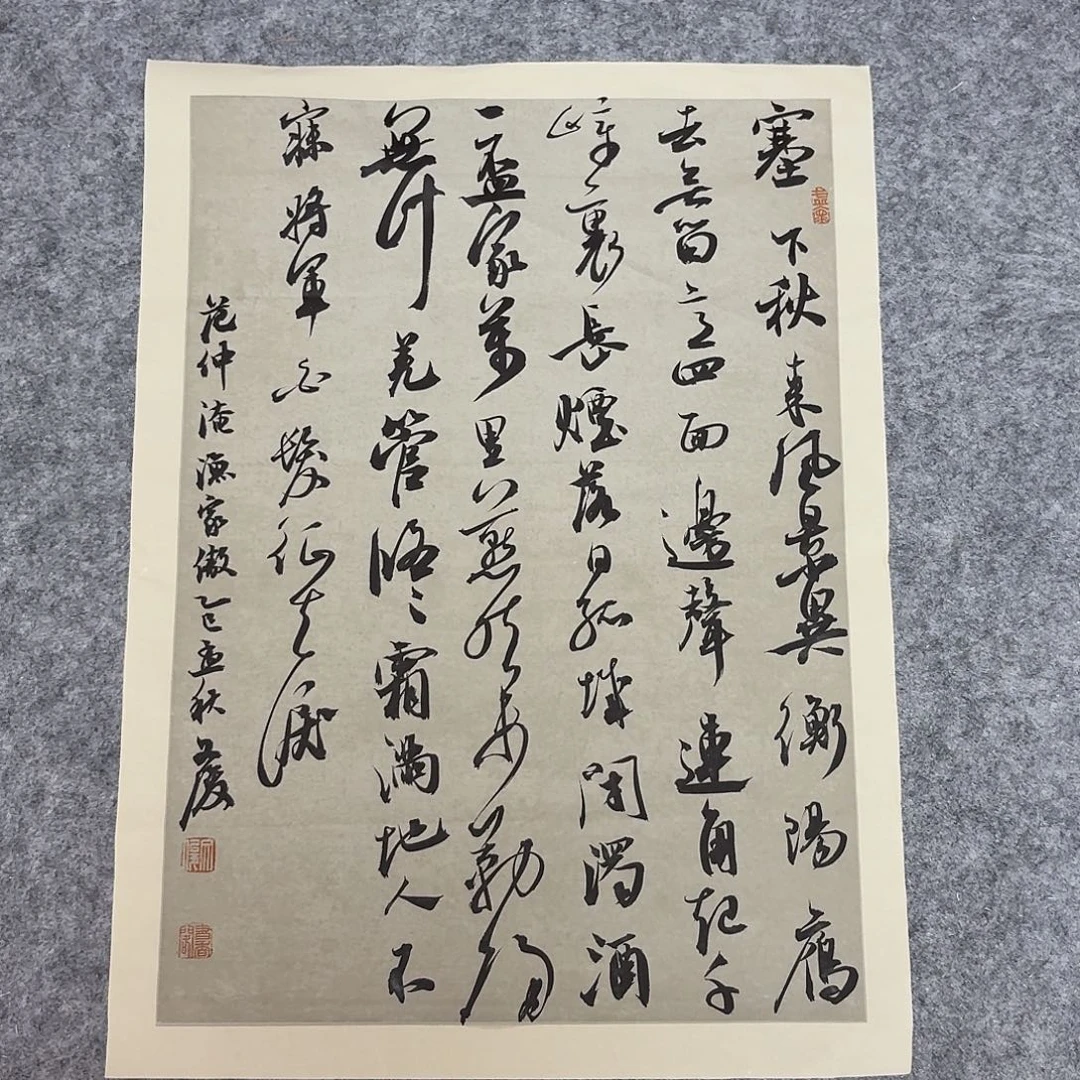 塞下秋来風景異衡陽鴈
去無留意四面邊聲連角起千
嶂裏長煙落日孤城閉濁酒
一盃家萬里燕然未勒歸
無計羌管悠〻霜滿地人不
寐將軍白髮征夫淚
范仲淹漁家傲秋